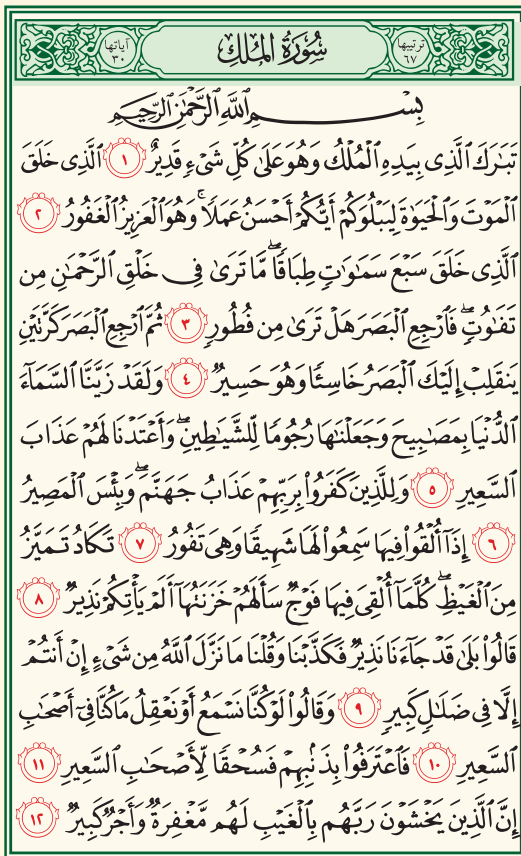 ترتيبها ٦٧ سُورَةُ المُلْكِ آياتها ٣٠
بِسْمِ اللَّهِ الرَّحْمَٰنِ الرَّحِيمِ
تَبَٰرَكَ ٱلَّذِى بِيَدِهِ ٱلْمُلْكُ وَهُوَ عَلَىٰ كُلِّ شَىْءٍ قَدِيرٌ ١ ٱلَّذِى خَلَقَ
ٱلْمَوْتَ وَٱلْحَيَوٰةَ لِيَبْلُوَكُمْ أَيُّكُمْ أَحْسَنُ عَمَلًا ۚ وَهُوَ ٱلْعَزِيزُ ٱلْغَفُورُ ٢
ٱلَّذِى خَلَقَ سَبْعَ سَمَٰوَٰتٍ طِبَاقًا ۖ مَّا تَرَىٰ فِى خَلْقِ ٱلرَّحْمَٰنِ مِن
تَفَٰوُتٍ ۖ فَٱرْجِعِ ٱلْبَصَرَ هَلْ تَرَىٰ مِن فُطُورٍ ٣ ثُمَّ ٱرْجِعِ ٱلْبَصَرَ كَرَّتَيْنِ
يَنقَلِبْ إِلَيْكَ ٱلْبَصَرُ خَاسِئًا وَهُوَ حَسِيرٌ ٤ وَلَقَدْ زَيَّنَّا ٱلسَّمَآءَ
ٱلدُّنْيَا بِمَصَٰبِيحَ وَجَعَلْنَٰهَا رُجُومًا لِّلشَّيَٰطِينِ ۖ وَأَعْتَدْنَا لَهُمْ عَذَابَ
ٱلسَّعِيرِ ٥ وَلِلَّذِينَ كَفَرُوا۟ بِرَبِّهِمْ عَذَابُ جَهَنَّمَ ۖ وَبِئْسَ ٱلْمَصِيرُ
٦ إِذَآ أُلْقُوا۟ فِيهَا سَمِعُوا۟ لَهَا شَهِيقًا وَهِىَ تَفُورُ ٧ تَكَادُ تَمَيَّزُ
مِنَ ٱلْغَيْظِ ۖ كُلَّمَآ أُلْقِىَ فِيهَا فَوْجٌ سَأَلَهُمْ خَزَنَتُهَآ أَلَمْ يَأْتِكُمْ نَذِيرٌ ٨
قَالُوا۟ بَلَىٰ قَدْ جَآءَنَا نَذِيرٌ فَكَذَّبْنَا وَقُلْنَا مَا نَزَّلَ ٱللَّهُ مِن شَىْءٍ إِنْ أَنتُمْ
إِلَّا فِى ضَلَٰلٍ كَبِيرٍ ٩ وَقَالُوا۟ لَوْ كُنَّا نَسْمَعُ أَوْ نَعْقِلُ مَا كُنَّا فِىٓ أَصْحَٰبِ
ٱلسَّعِيرِ ١٠ فَٱعْتَرَفُوا۟ بِذَنۢبِهِمْ فَسُحْقًا لِّأَصْحَٰبِ ٱلسَّعِيرِ ١١
إِنَّ ٱلَّذِينَ يَخْشَوْنَ رَبَّهُم بِٱلْغَيْبِ لَهُم مَّغْفِرَةٌ وَأَجْرٌ كَبِيرٌ ١٢